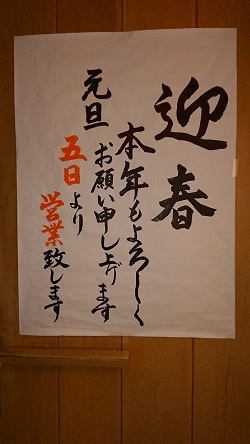 迎春
本年もよろしく
お願い申し上げます
元旦
五日より
営業致します